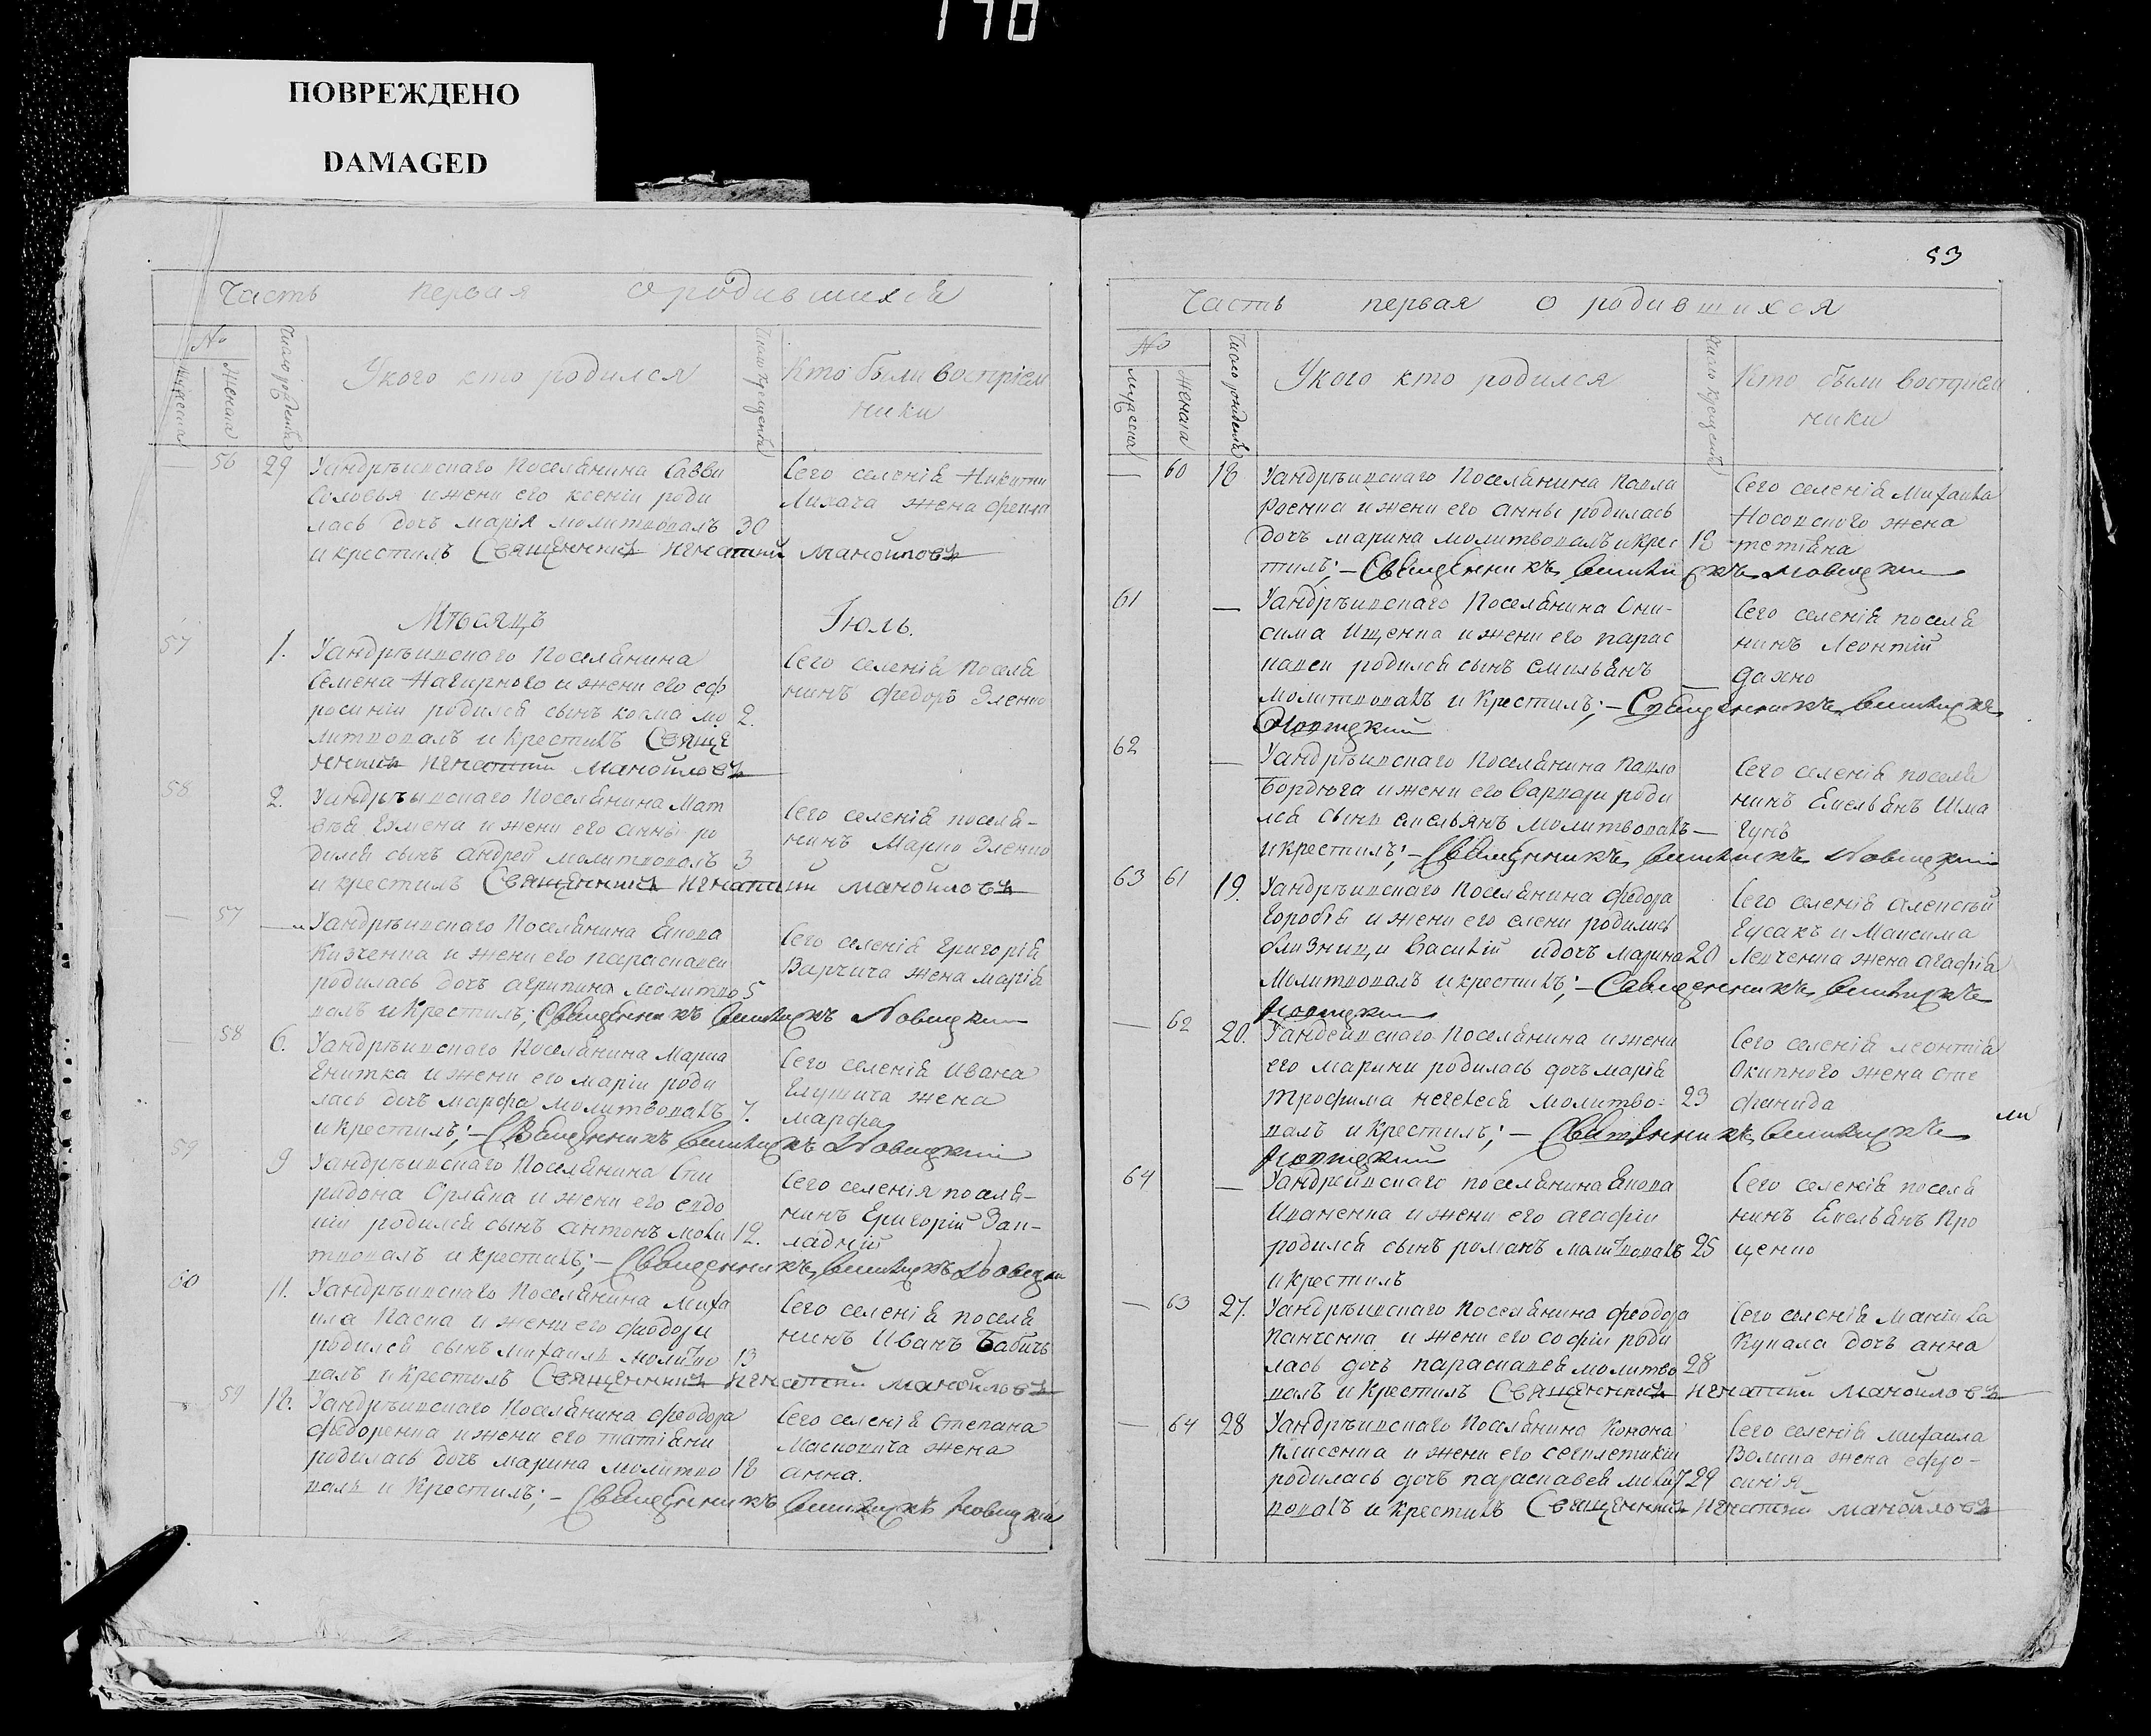 170
ПОВРЕЖДЕНО
DAMAGED
Часть первая о родившихся
№
Мужеска
Женска
Число рождения
У кого кто родился
Число крещения
Кто были восприем
ники
56 29 У андреѣвскаго Поселянина Савви
Соловья и жени его ксенiи роди
лась дочь марiя молитвовалъ 30
и крестилъ Священникъ Игнатiй Маноиловъ
Сего селенiя Никити
Лихача жена
Мѣсяцъ Iюль.
57 1. У андреѣвскаго Поселянина
Семена Нагирного и жени его еф
росинiи родился сынъ косма мо 2.
литвовалъ и крестилъ Свяще
нникъ Игнатiй Маноиловъ
Сего селенiя поселя
нинъ федоръ Зленко
58 2. У андреѣвскаго Поселянина Мат
вѣя Ехмена и жени его анны ро
дился сынъ андрей молитвовалъ 3
и крестилъ Священникъ Игнатiй Маноиловъ
Сего селенiя поселя-
нинъ Марко Зленко
— 57 — У андреѣвскаго Поселянина Якова
Кизченка и жени его параскавеи
родилась дочь агрипина молитво 5
валъ и крестилъ; Священникъ Новицкiй
Сего селенiя Григорiя
Варчича жена марiя
— 58 6. У андреѣвскаго Поселянина Марка
Гнитка и жени его марiи роди
лась дочь марфа молитвовалъ 7.
и крестилъ; — Священникъ Новицкiй
Сего селенiя Ивана
Глушича жена
марфа
59 9 У андреѣвскаго Поселянина Спи
ридона Орляка и жени его евдо
кiи родился сынъ антонъ моли 12.
твовалъ и крестилъ; — Священникъ Новицкiй
Сего селенiя поселя-
нинъ Григорiй Зап-
ладнiй
60 11. У андреѣвскаго Поселянина Миха
ила Паска и жени его феодори
родился сынъ михаилъ молитво 13
валъ и крестилъ Священникъ Игнатiй Маноиловъ
Сего селенiя поселя
нинъ Иванъ Бабичь
59 18. У андреѣвскаго Поселянина феодора
федоренка и жени его татiяни
родилась дочь марина молитво 18
валъ и крестилъ; — Священникъ Новицкiй
Сего селенiя Степана
Масковича жена
анна.
53
Часть первая о родившихся
№
Мужеска
Женска
Число рожденiя
У кого кто родился
Число крещенiя
Кто были восприем
ники
— 60 18 У андреѣвскаго Поселянина Павла
Роенка и жени его анны родилась
дочь марина молитвовалъ и крес 18
тилъ; — Священникъ Новицкiй
Сего селенiя Михаила
Носовского жена
тетiяна
61 — У андреѣвскаго Поселянина Они-
сима Ищенка и жени его парас
кавеи родился сынъ емилянъ
молитвовалъ и крестилъ; — Священникъ
Новицкий
Сего селенiя поселя
нинъ Леонтiй
Дахно
62 — У андреѣвскаго Поселянина Павло
Бордюга и жени его варвари роди
лся сынъ емельянъ молитвовалъ —
и крестилъ; — Священникъ Новицкiй
Сего селенiя поселя
нинъ Емельянъ Шма
гунъ
63 61 19. У андреѣвскаго Поселянина федора
Горобья и жени его елени родились
близници василiй и дочь марина 20
Молитвовалъ и крестилъ; — Священникъ
Новицкий
Сего селенiя алексѣй
Гусакъ и Максима
Левченка жена агафiя
— 62 20. У андреивскаго Поселянина и жени
его марини родилась дочь марiя
трофима негелеса молитво- 23
валъ и крестилъ; — Священникъ
Новицкий
Сего селенiя леонтiя
Окипного жена сте
фанида
64 — У андрейвскаго поселянина Якова
Иваненка и жени его агафiи
родился сынъ романъ молитвовалъ 25
и крестилъ
Сего селенiя поселя
нинъ Емельянъ Про
ценко
— 63 27. У андреѣвскаго Поселянина феодора
Панченка и жени его софiи роди
лась дочь параскавея молитво 28
валъ и крестилъ Священникъ Игнатiй Маноиловъ
Сего селенiя
Купала дочь анна
— 64 28 У андреѣвскаго Поселянина Конона
Плисенка и жени его
родилась дочь параскавея молит 29
вовалъ и крестилъ Священникъ Игнатiй Маноиловъ
Сего селенiя михаила
Волика жена ефро-
синiя